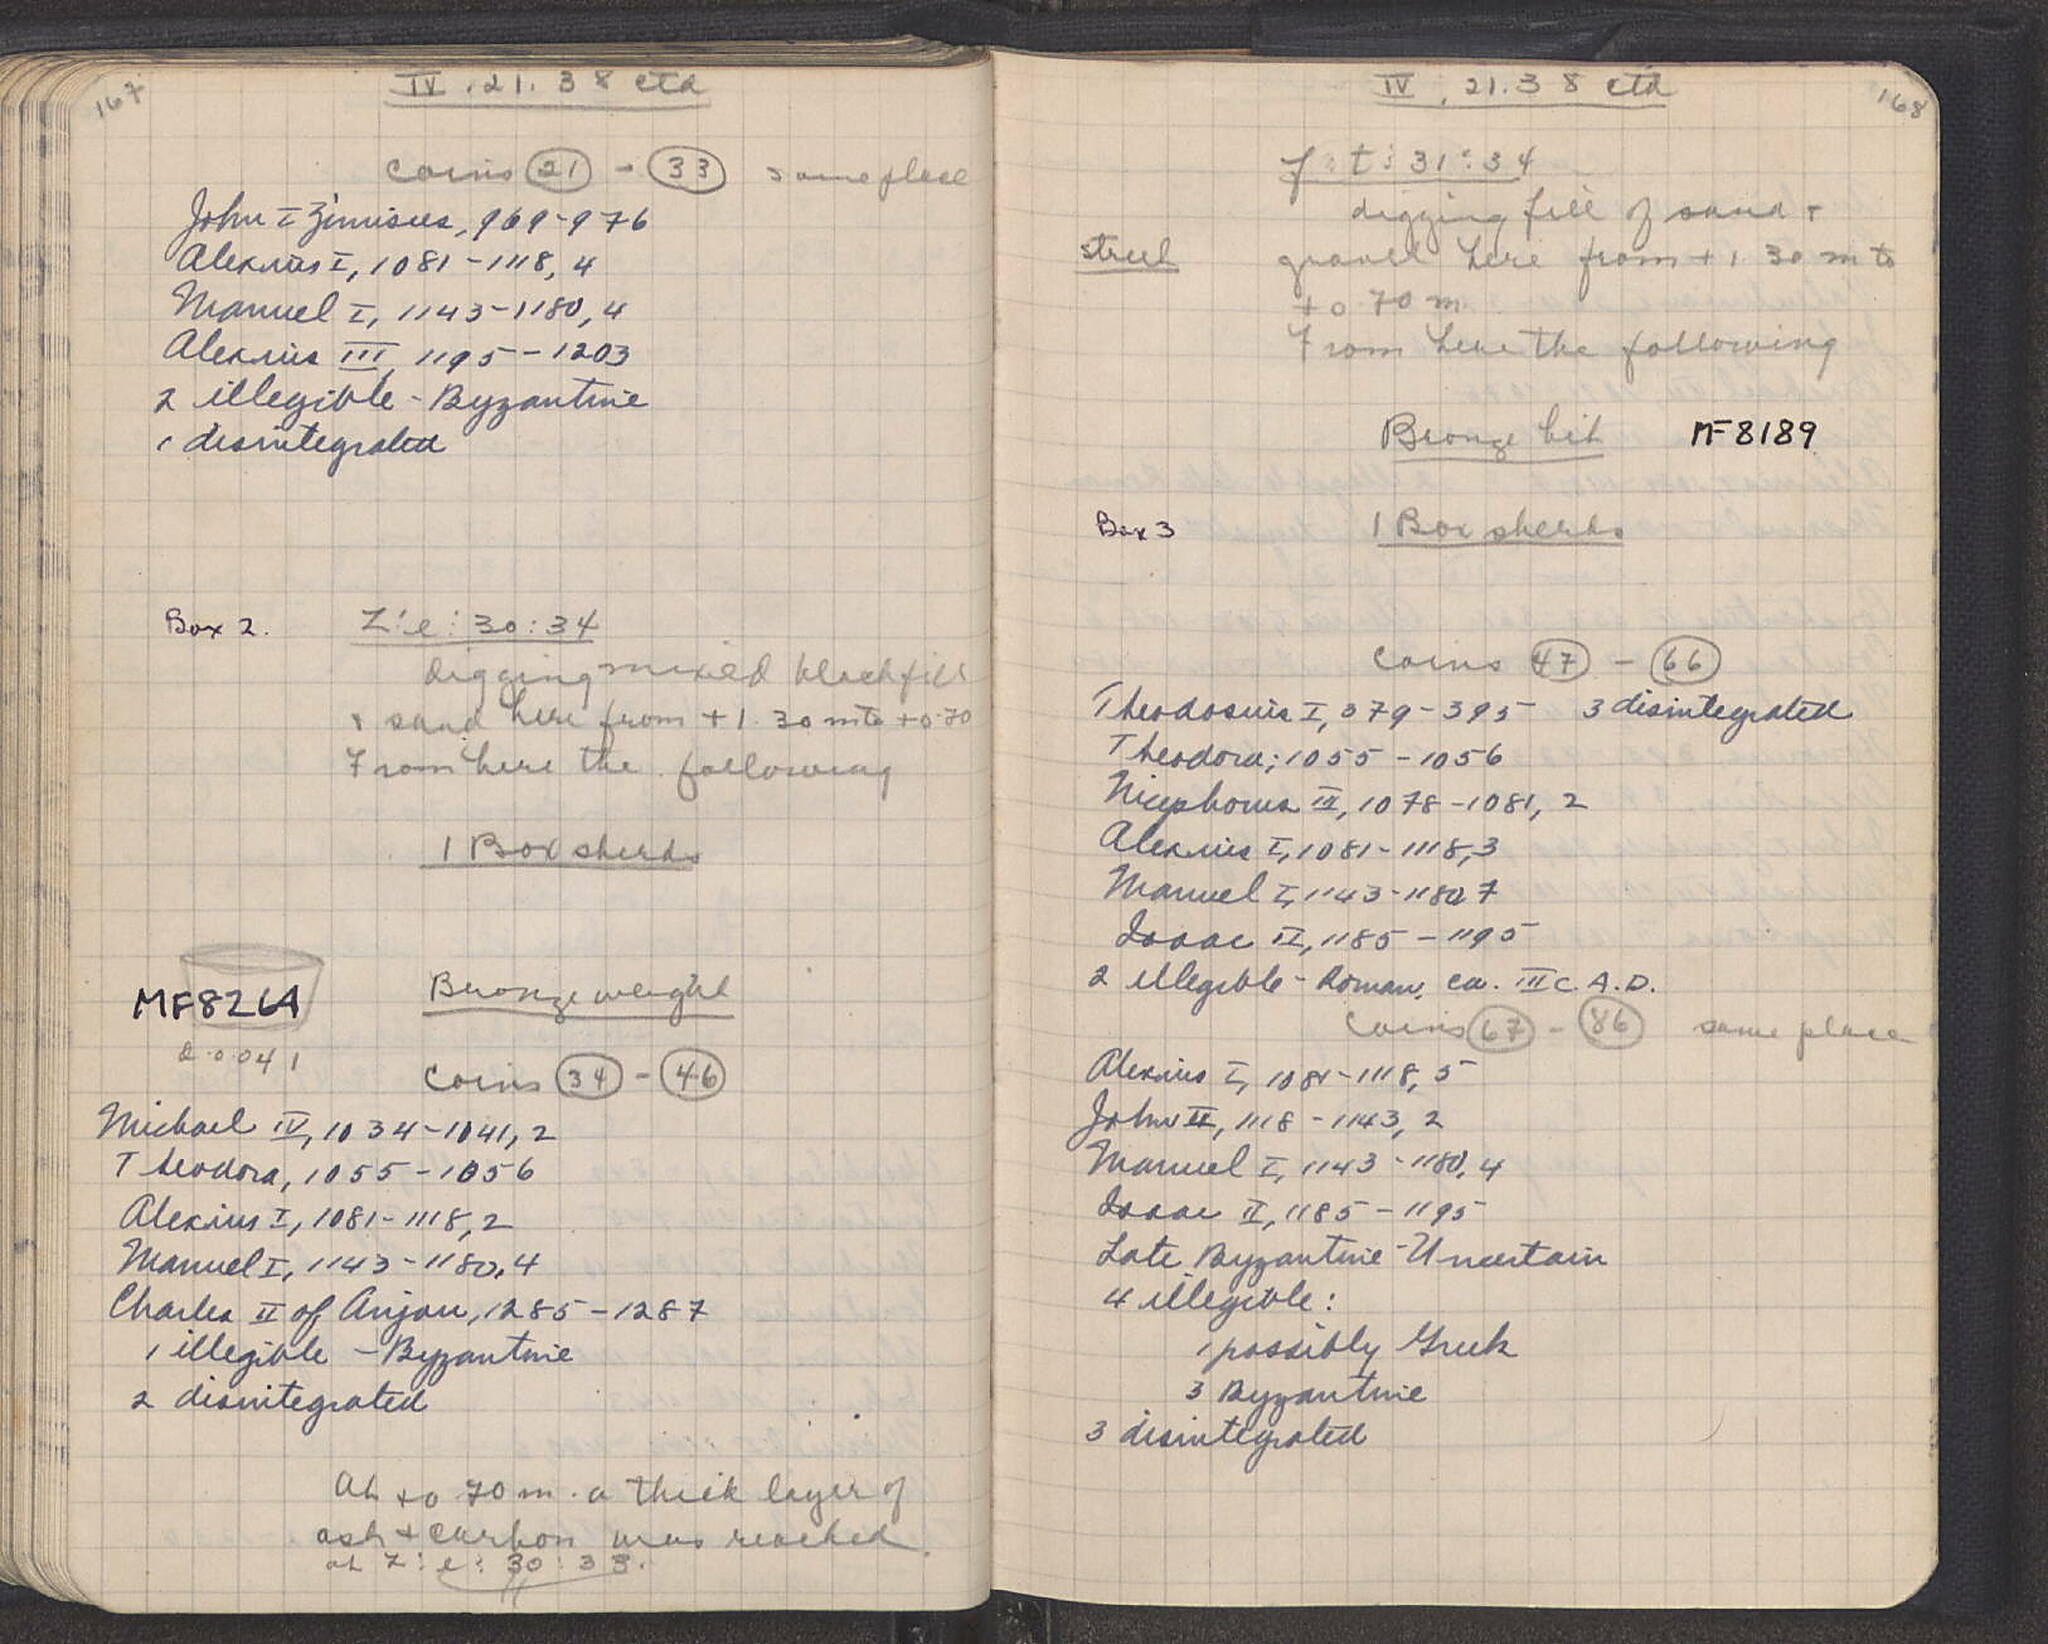 167
IV . 21. 38 ctd
Coins 21 - 33 same place
John I Zimisces, 969-976
Alexius I, 1081-1118, 4
Manuel I, 1143-1180, 4
Alexius III, 1195-1203
2 illegible - Byzantine
1 disintegrated
Box 2. Z:e:30:34
digging mixed black fill
+ sand here from +1.30 m to +0.70
From here the following
1 Box sherds
MF8264 Bronze weight
d. 0.041
Coins 34 - 46
Michael IV, 1034-1041, 2
Theodora, 1055-1056
Alexius I, 1081-1118, 2
Manuel I, 1143-1180, 4
Charles II of Anjou, 1285-1287
1 illegible - Byzantine
2 disintegrated
At +0.70 m. a thick layer of
ash + carbon was reached.
at Z:e:30:33.
168
IV . 21.38 ctd
f:t:31:34
digging fill of sand +
street gravel here from +1.30 m to
+0.70 m.
From here the following
Bronze bit MF8189
Box 3 1 Box sherds
Coins 47 - 66
Theodosius I, 379-395 3 disintegrated
Theodora, 1055-1056
Nicephorus III, 1078-1081, 2
Alexius I, 1081-1118, 3
Manuel I, 1143-1180, 7
Isaac II, 1185-1195
2 illegible - Roman, ca. III C. A.D.
Coins 67 - 86 same place
Alexius I, 1081-1118, 5
John II, 1118-1143, 2
Manuel I, 1143-1180, 4
Isaac II, 1185-1195
Late Byzantine - Uncertain
4 illegible:
1 possibly Greek
3 Byzantine
3 disintegrated